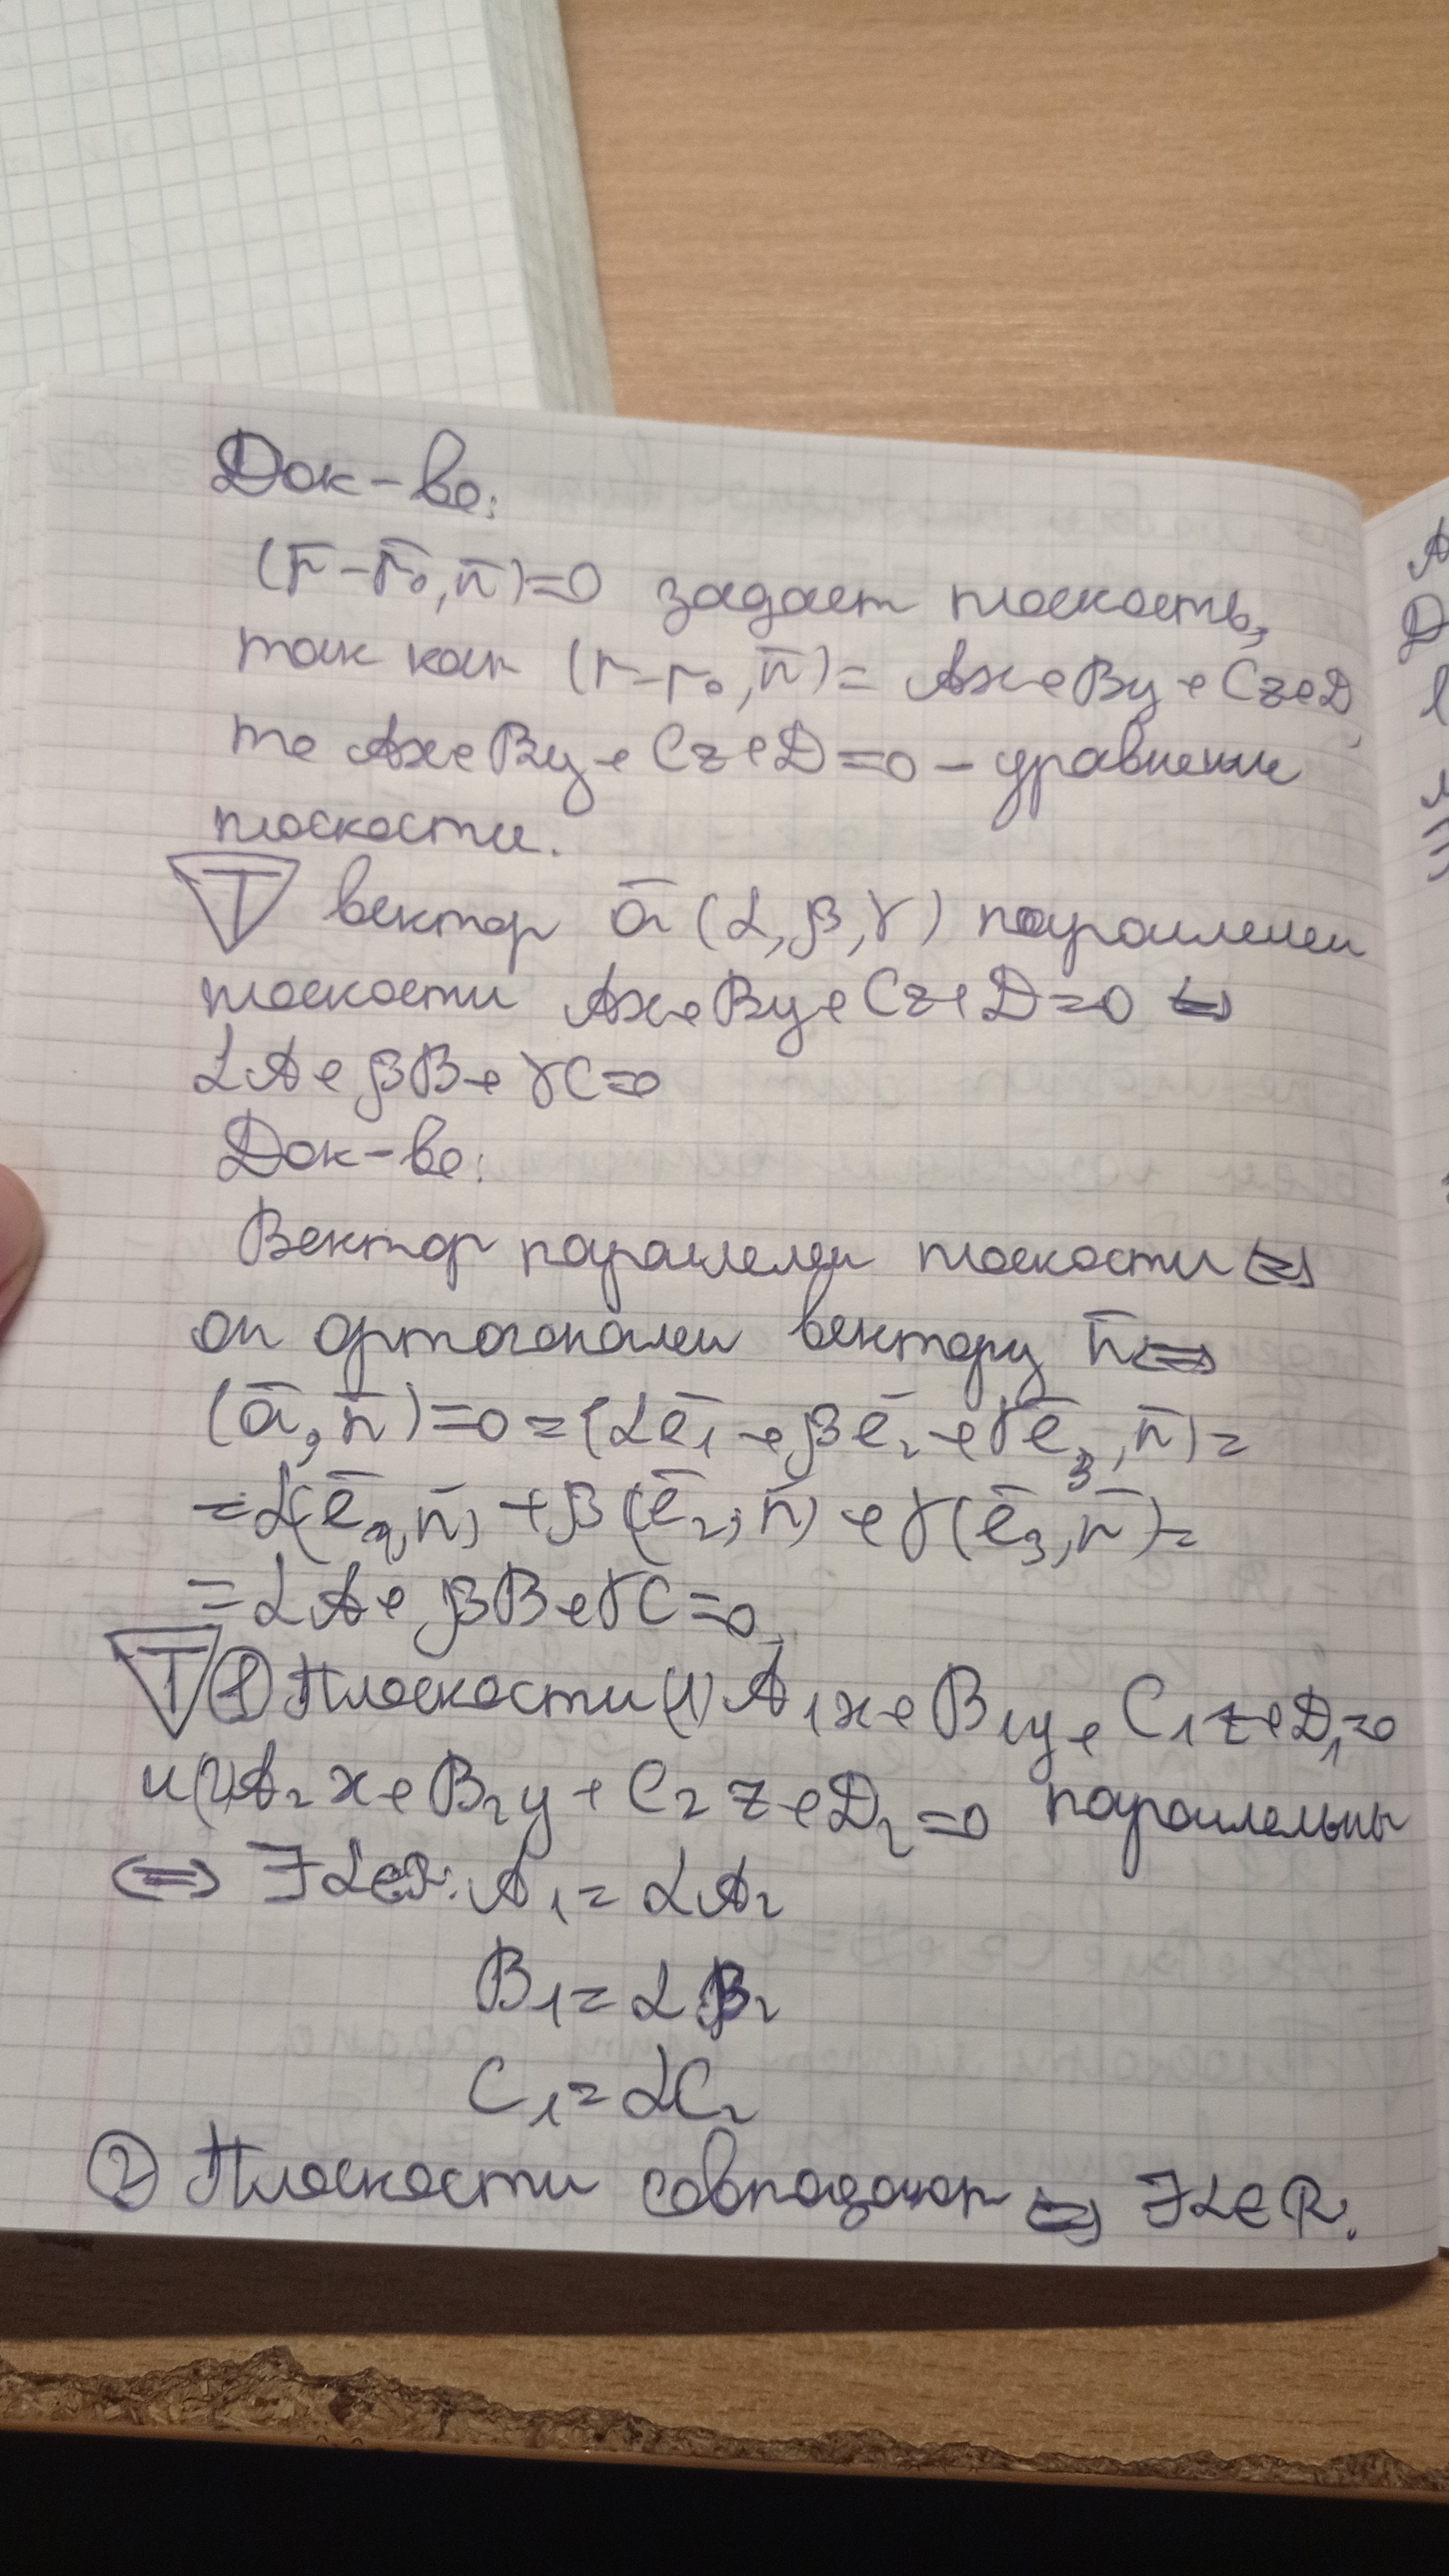 Док-во:
(r̄ - r̄₀, n̄) = 0 задает плоскость,
так как (r - r₀, n̄) = Ax + By + Cz + D,
то Ax + By + Cz + D = 0 - уравнение
плоскости.
Т вектор ā (α, β, γ) параллелен
плоскости Ax + By + Cz + D = 0 ⇔
αA + βB + γC = 0
Док-во:
Вектор параллелен плоскости ⇔
он ортогонален вектору n̄ ⇔
(ā, n̄) = 0 = (αē₁ + βē₂ + γē₃, n̄) =
= α(ē₁, n̄) + β(ē₂, n̄) + γ(ē₃, n̄) =
= αA + βB + γC = 0
Т ① Плоскости (1) A₁x + B₁y + C₁z + D₁ = 0
и (2) A₂x + B₂y + C₂z + D₂ = 0 параллельны
⇔ ∃α∈R: A₁ = αA₂
B₁ = αB₂
C₁ = αC₂
② Плоскости совпадают ⇔ ∃α∈R: